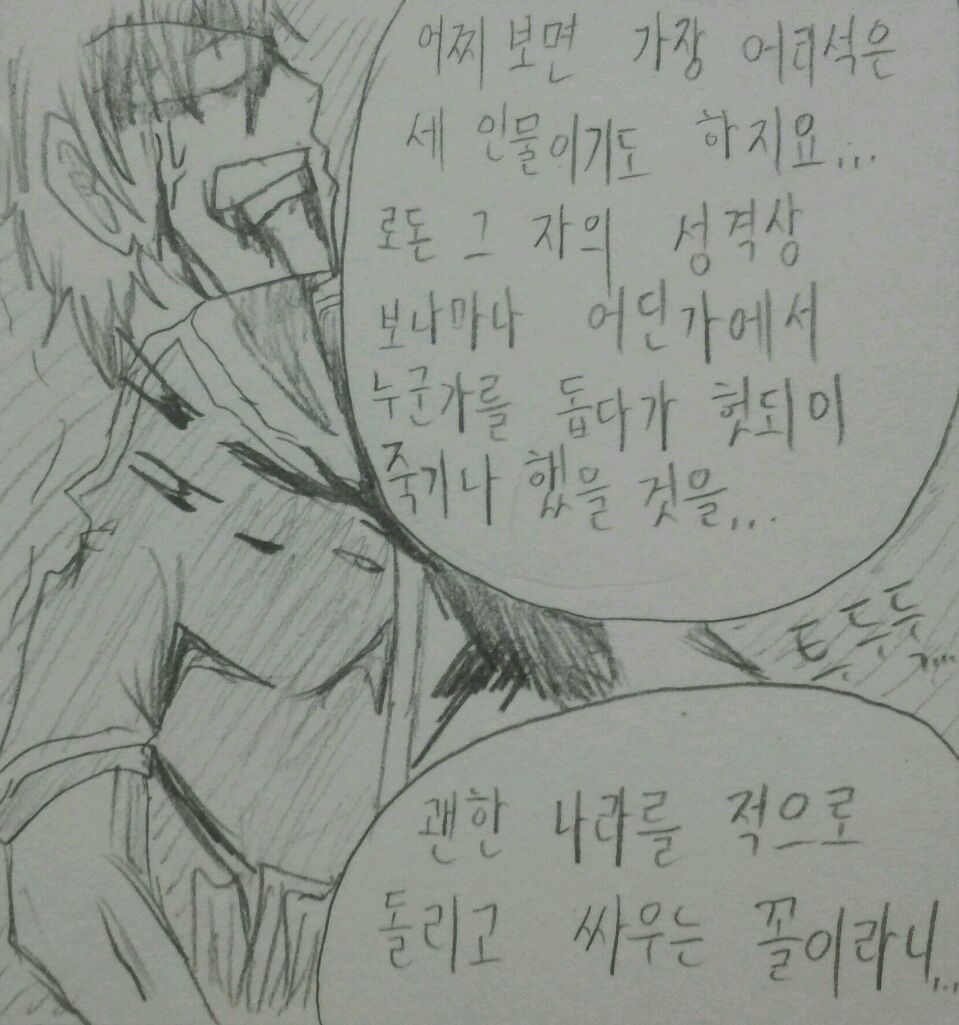 어찌 보면 가장 어리석은
세 인물이기도 하지요...
로돈 그 자의 성격상
보나마나 어딘가에서
누군가를 돕다가 헛되이
죽기나 했을 것을...
투두둑...
괜한 나라를 적으로
돌리고 싸우는 꼴이라니...